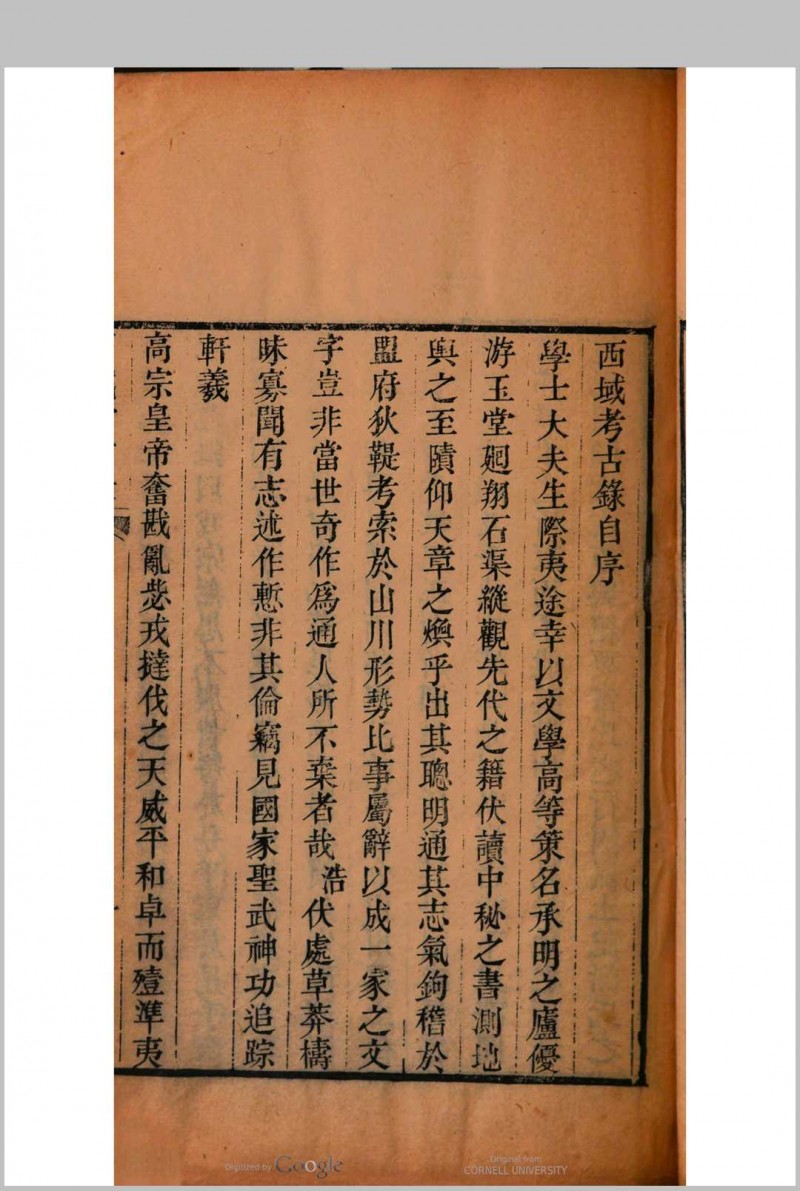 西域考古錄自序
學士大夫生際夷途幸以文學高等策名承明之廬優
游玉堂廻翔石渠縱觀先代之籍伏讀中秘之書測地
輿之至賾仰天章之煥乎出其聰明通其志氣鉤稽於
盟府狄鞮考索於山川形勢比事屬辭以成一家之文
字豈非當世奇作爲通人所不棄者哉浩伏處草莽檮
昧寡聞有志述作慙非其倫竊見國家聖武神功追踪
軒羲
高宗皇帝奮戡亂毖戎撻伐之天威平和卓而殪準夷
Digitized by Google
Original from
CORNELL UNIVERSITY